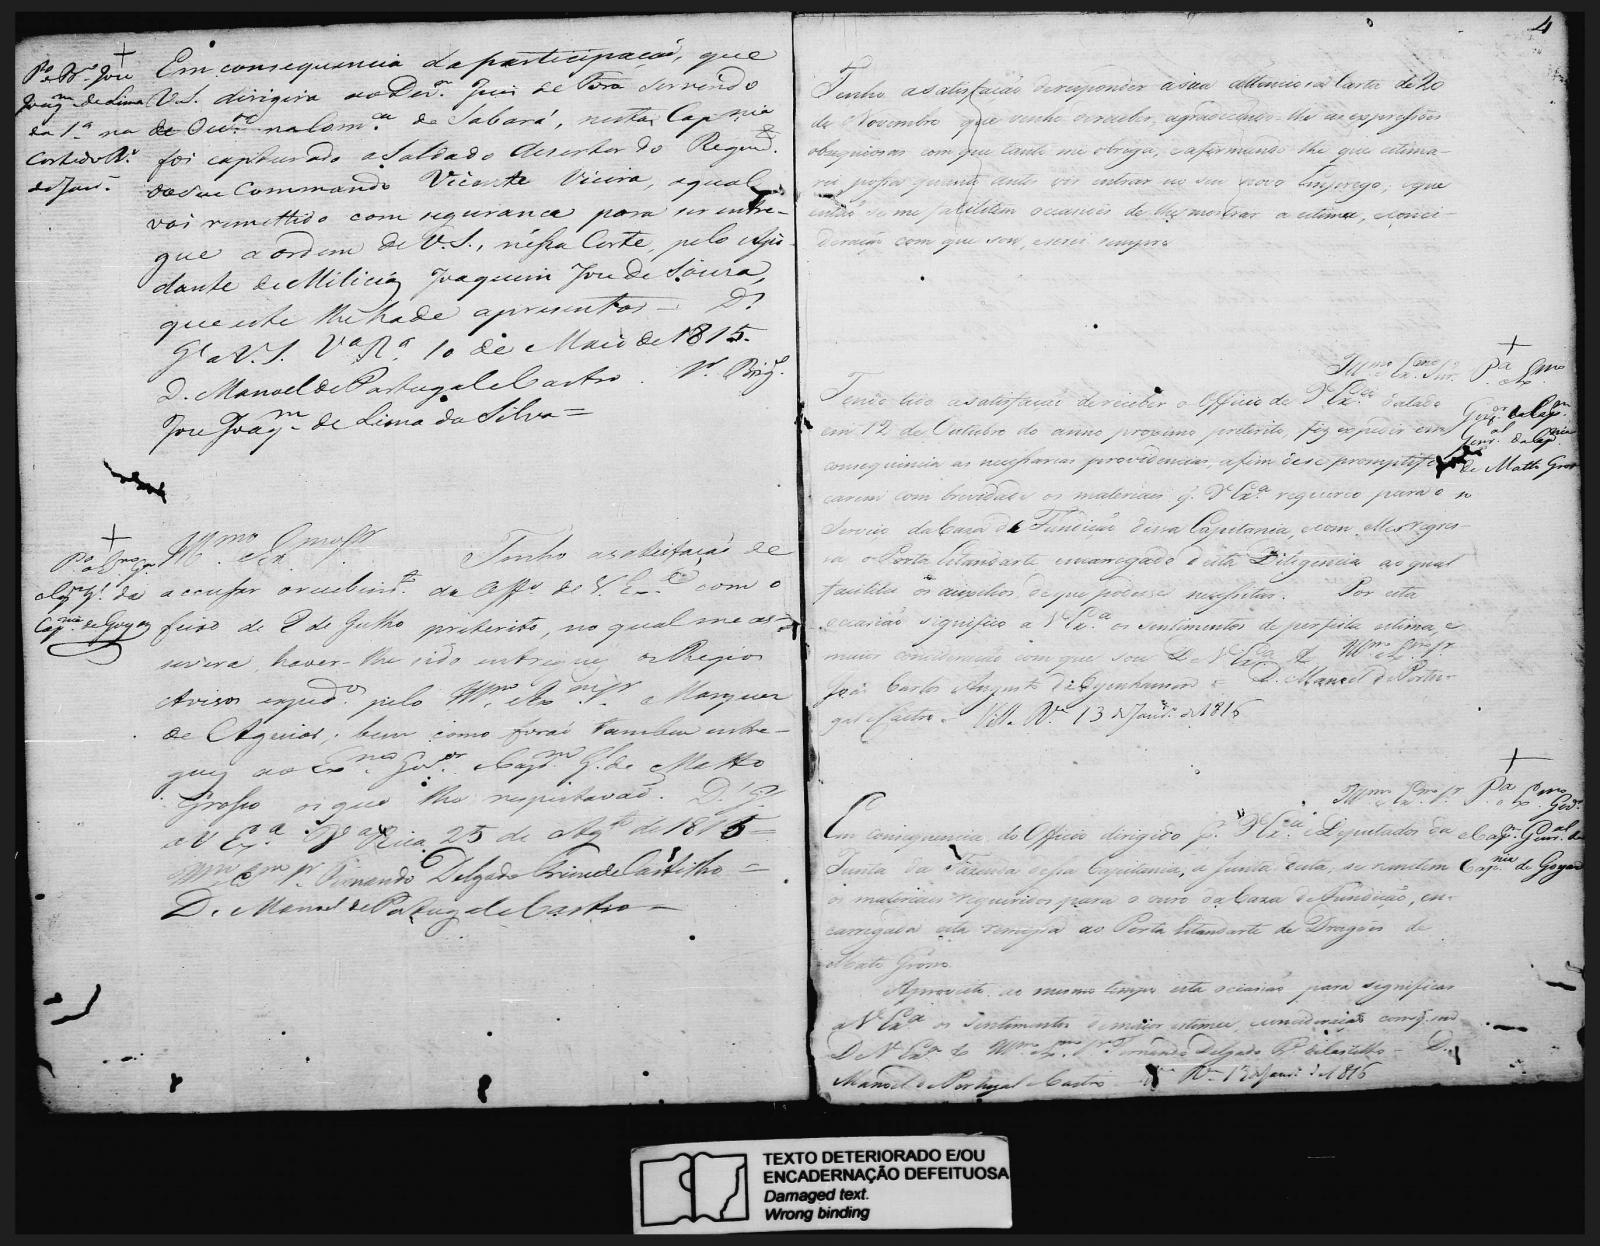 P.ª o Br.º Joze
Joaq.m de Lima
da S.ª na
Corte do R.º
de Jan.º
Em consequencia da participação, que
V.S. dirigira ao Dez.or Juiz de Fora servindo
de Ouv.or na Com.ca de Sabará, nesta Cap.nia
foi capturado o Soldado desertor do Regim.to
do seu Commando Vicente Vieira, o qual
vai remettido com segurança para ser entre-
gue a ordem de V.S., nessa Corte, pelo Aju-
dante de Milicias Joaquim Joze de Souza,
que este lhe hade apresentar = D.s
G.e a V.S. V.ª R.ª 10 de Maio de 1815.
D. Manoel de Portugal e Castro. S.r Brig.r
Joze Joaq.m de Lima da Silva =
P.ª o Ex.mo Gov.or
e Cap.m G.l da
Cap.nia de Goyaz
Ill.mo e Ex.mo Snr.
Tenho a satisfação de
accusar o recebim.to do Off.o de V. Ex.cia com o
feixo de 2 de Julho preterito, no qual me as-
severa haver-lhe sido entregues os Regios
Avisos exped.os pelo Ill.mo e Ex.mo Snr. Marquez
de Aguiar, bem como forão tambem entre-
gues ao Ex.mo Gov.or e Cap.m G.l de Matto
Grosso os que lhe respeitavão. D.s G.e
a V. Ex.ª V.ª Rica 25 de Ag.to de 1815 =
Ill.mo e Ex.mo Sr. Fernando Delgado Freire de Castilho =
D. Manoel de Portugal e Castro =
4
Tenho a satisfação de responder a sua attenciosa Carta de 20
de Novembro que venho de receber, agradecendo-lhe as expressões
obsequiosas com que tanto me obriga, e afirmando-lhe que estima-
rei possa quanto antes vir entrar no seu novo Emprego, e que
então se me facilitem occasiões de lhe mostrar a estima, e consi-
deração com que sou, e serei sempre
P.ª o Ex.mo
Gov.or e Cap.m
Gen.al da Cap.nia
de Matto Gros-
so
Ill.mo e Ex.mo Snr.
Tendo tido a satisfação de receber o Officio de V. Ex.cia datado
em 12 de Outubro do anno proximo preterito, fiz expedir em
consequencia as necessarias providencias, afim de se promptifi-
carem com brevidade os materiais q. V. Ex.ª requereo para o
serviço da Caza de Fundição dessa Capitania, e com elles regres-
sa o Porta Estandarte encarregado desta Diligencia ao qual
facilitei os auxilios, de que podesse necessitar. Por esta
occasião significo a V. Ex.ª os sentimentos de perfeita estima, e
maior consideração com que sou De V. Ex.cia & Ill.mo e Ex.mo Sr.
João Carlos Augusto d'Oyenhausen = D. Manoel de Portu-
gal e Castro = Villa R.ca 13 de Jan.ro de 1816
P.ª o Ex.mo Gov.or
e Cap.m Gen.al da
Cap.nia de Goyaz
Ill.mo e Ex.mo Sr.
Em consequencia do Officio dirigido p.r V. Ex.cia e Deputados da
Junta da Fazenda dessa Capitania, a Junta desta, se remetem
os materiais requeridos para o ouro da Caza de Fundição, en-
carregada esta remessa ao Porta Estandarte de Dragões de
Mato Grosso.
Aproveito ao mesmo tempo esta occasião para significar
a V. Ex.ª os Sentimentos de maior estima, e consideração com q. sou
De V. Ex.ª & Ill.mo e Ex.mo Sr. Fernando Delgado Fr.e de Castilho = D.
Manoel de Portugal e Castro = V.ª R.ca 13 de Jan.ro de 1816
TEXTO DETERIORADO E/OU
ENCADERNAÇÃO DEFEITUOSA
Damaged text.
Wrong binding